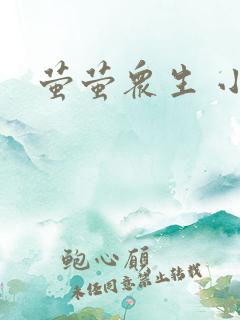 萤萤众生 小
鲍心愿
未经同意禁止转载